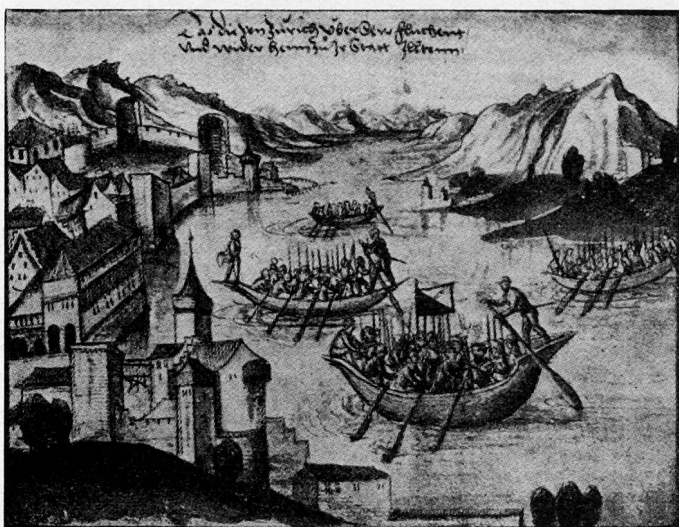 Das die von Zürich über See fluchent
Und wider heim zu Jr Statt Illtenn